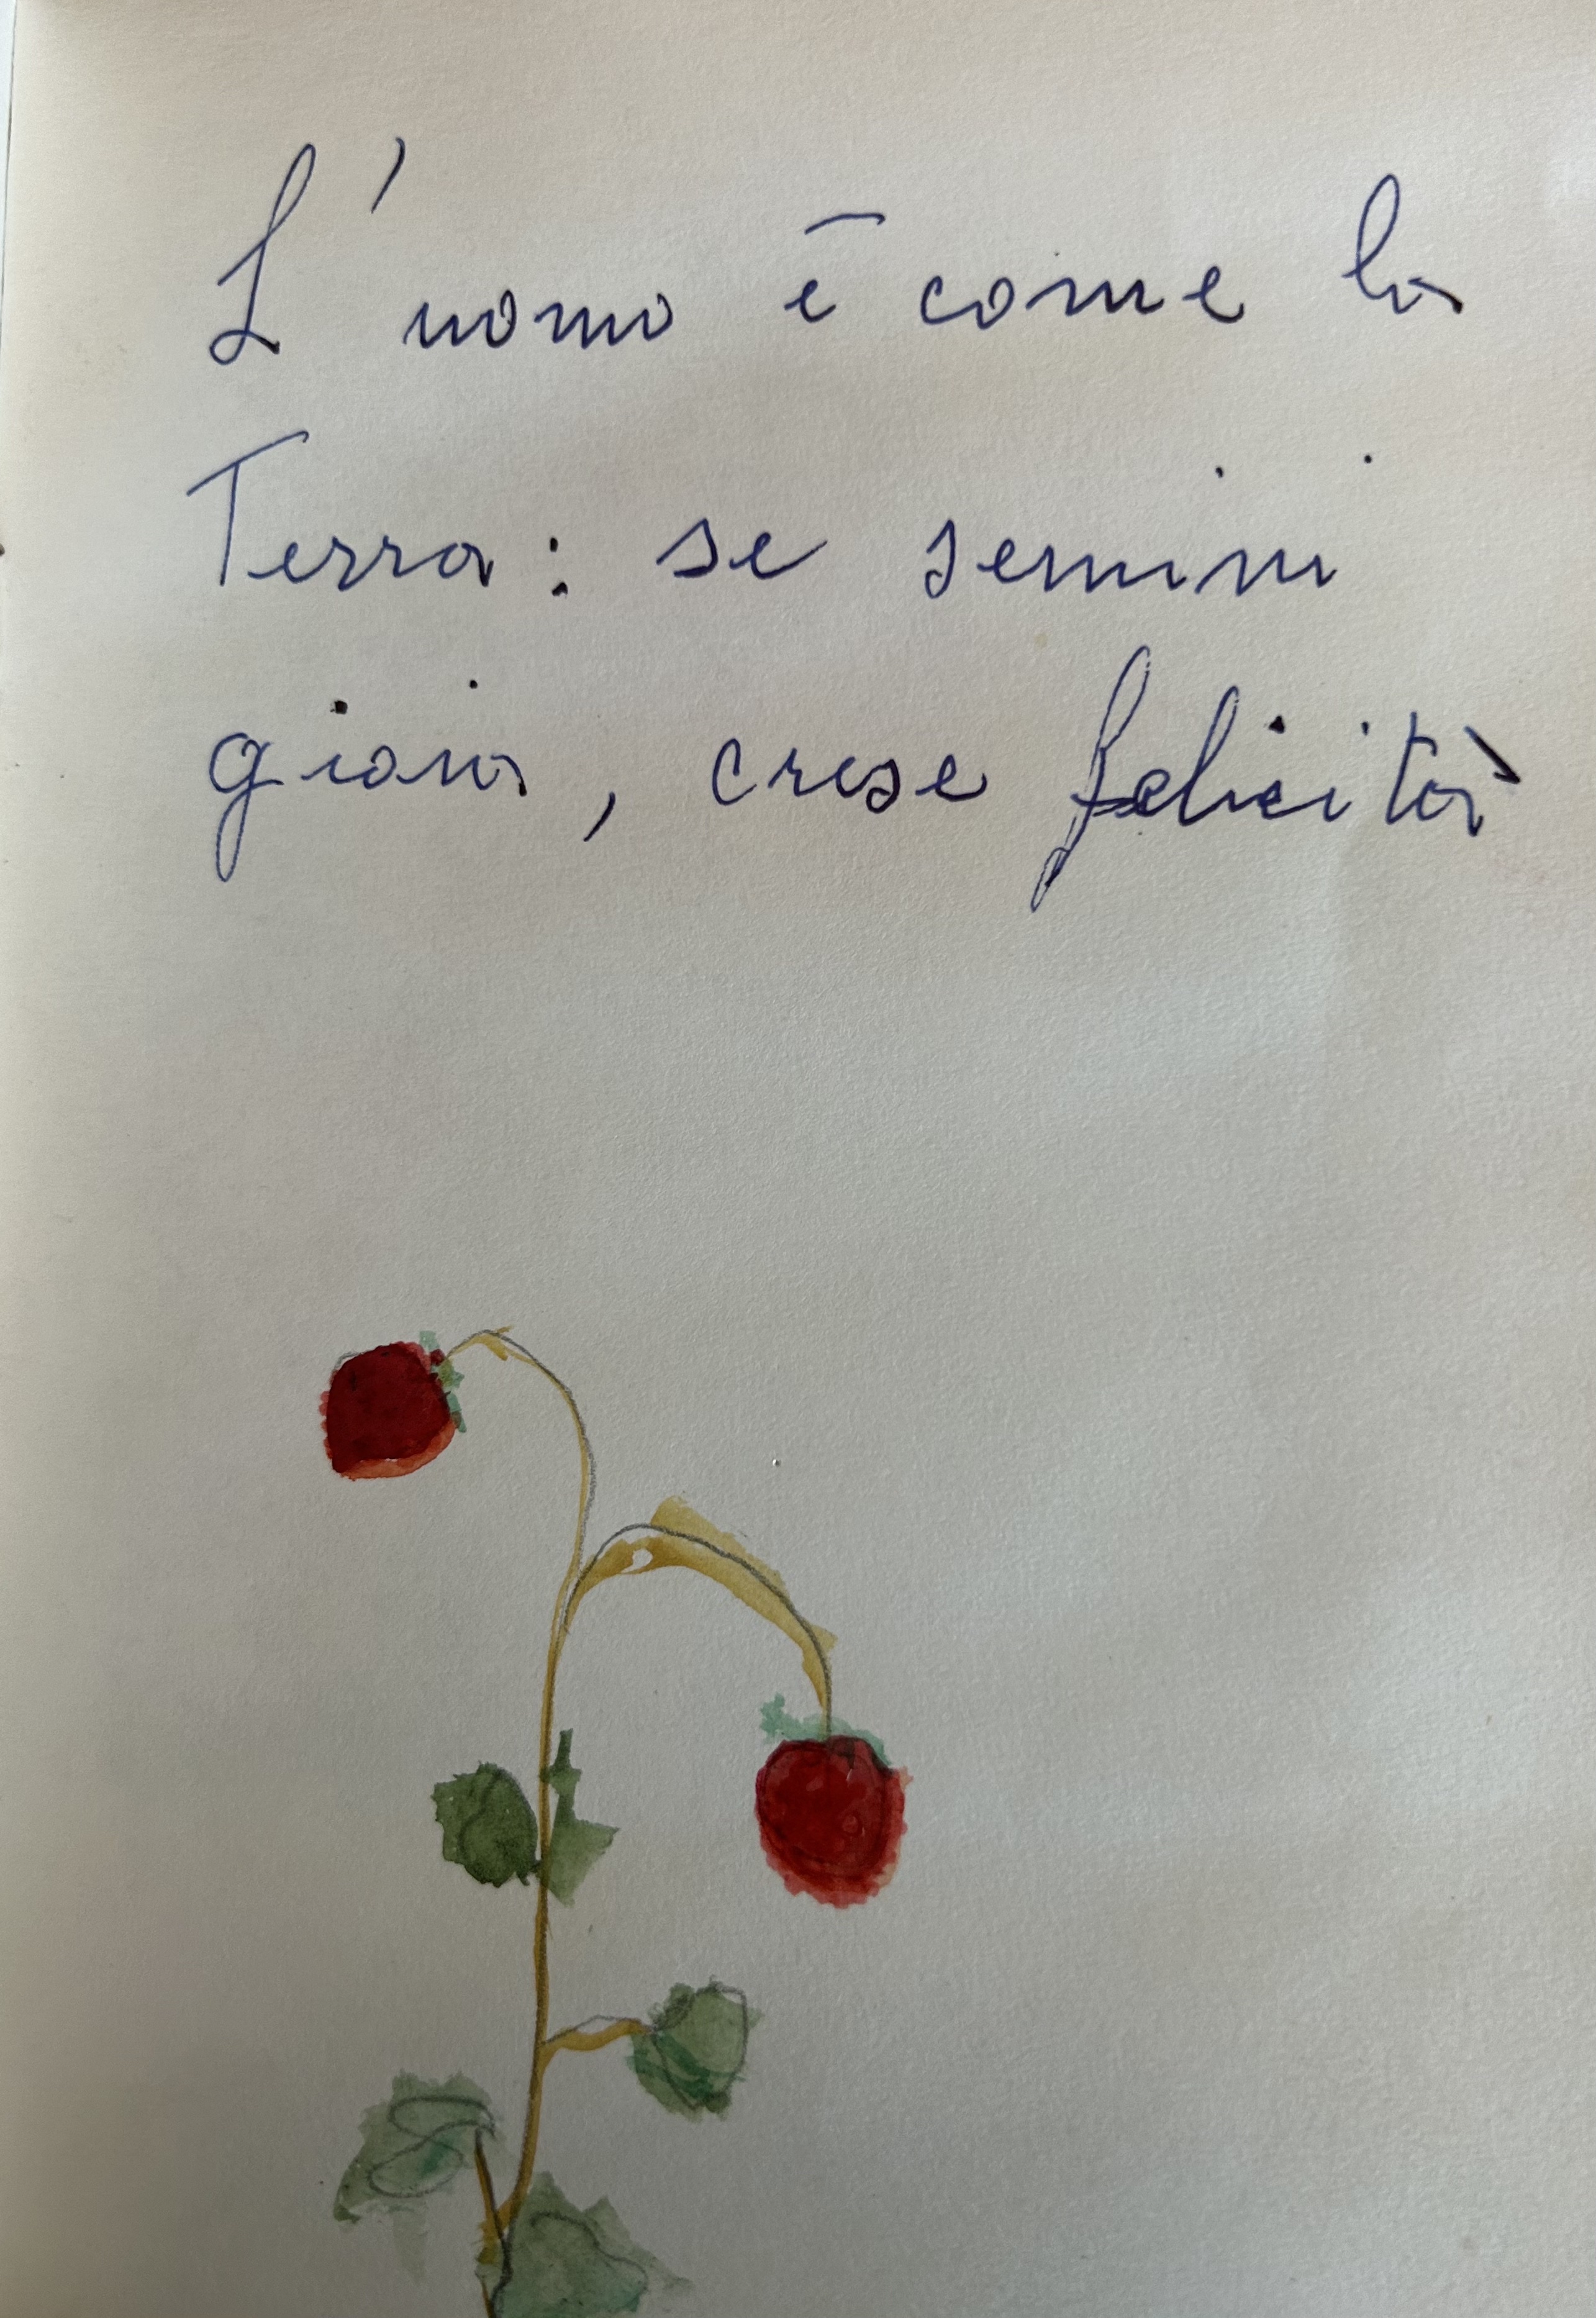 L'uomo è come la
Terra: se semini
gioia, crese felicità